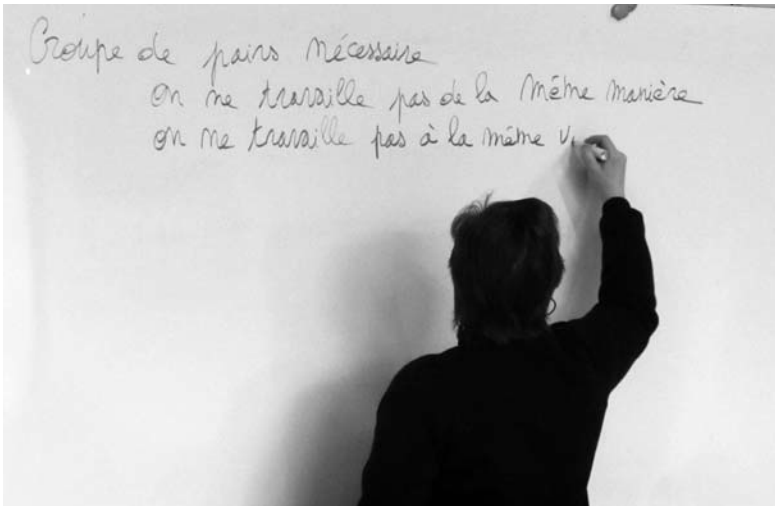 Groupe de pairs nécessaire
on ne travaille pas de la même manière
on ne travaille pas à la même v